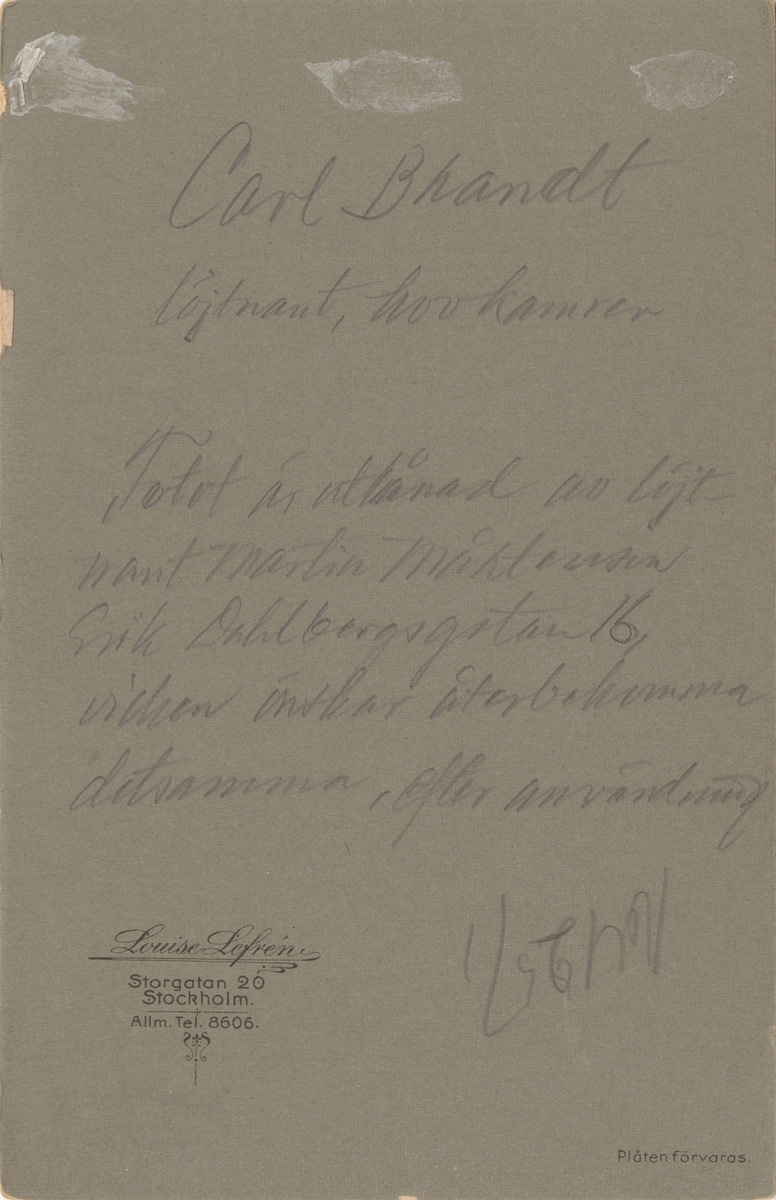 Carl Brandt
löjtnant, hovkamrer
Fotot är utlånad av löjt
nant Martin Mårtensen
Erik Dahlbergsgatan 16,
vicken önskar återbekomma
detsamma, efter användning
Louise Lefrén
Storgatan 20
Stockholm.
Allm. Tel. 8606.
Plåten förvaras.